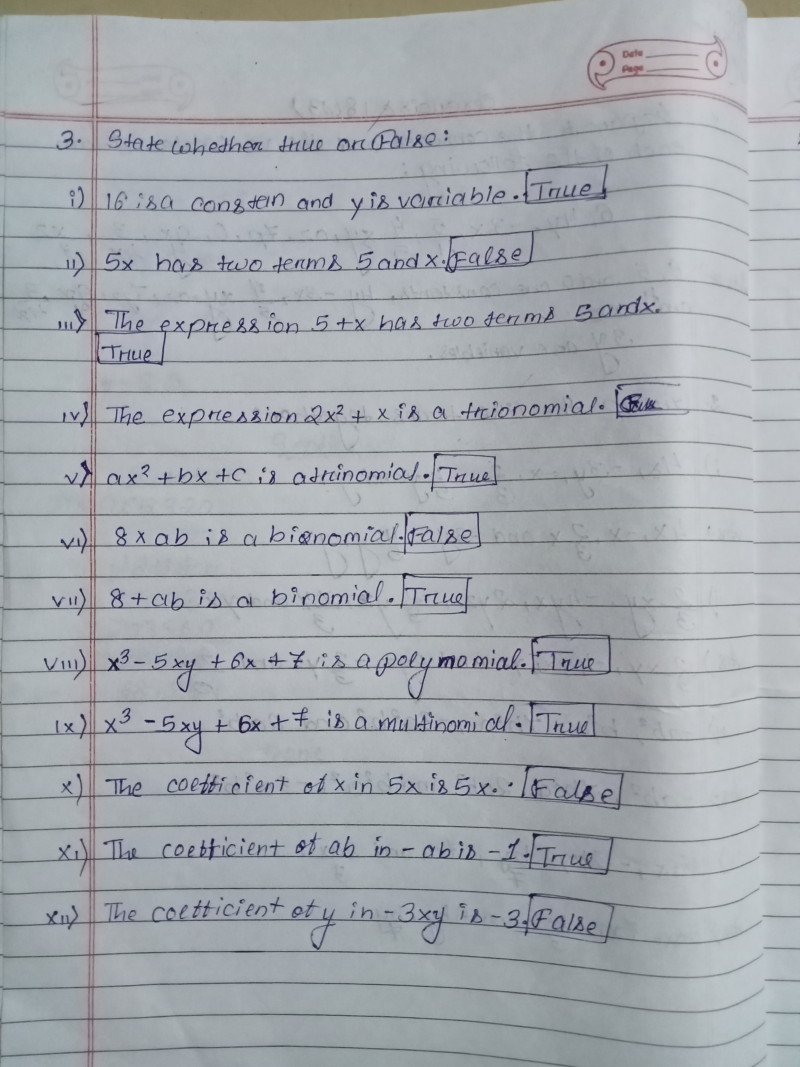 Date
Page
3. State whether true or False:
i) 16 is a constan and y is variable. True
ii) 5x has two terms 5 and x. False
iii) The expression 5+x has two terms 5 and x.
True
iv) The expression 2x² + x is a trionomial.
v) ax² + bx + c is a trinomial. True
vi) 8 x ab is a bionomial. False
vii) 8 + ab is a binomial. True
viii) x³ - 5xy + 6x + 7 is a polymomial. True
ix) x³ - 5xy + 6x + 7 is a multinomial. True
x) The coefficient of x in 5x is 5x. False
xi) The coefficient of ab in - ab is -1. True
xii) The coefficient of y in -3xy is -3. False